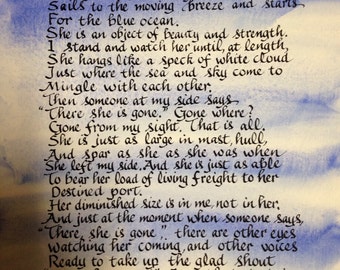 Sails to the moving breeze and starts
For the blue ocean.
She is an object of beauty and strength.
I stand and watch her until, at length,
She hangs like a speck of white cloud
Just where the sea and sky come to
Mingle with each other.
Then someone at my side says
"There she is gone." Gone where?
Gone from my sight. That is all.
She is just as large in mast, hull,
And spar as she as she was when
She left my side. And she is just as able
To bear her load of living freight to her
Destined port.
Her diminished size is in me, not in her.
And just at the moment when someone says,
"There, she is gone" there are other eyes
watching her coming and other voices
Ready to take up the glad shout